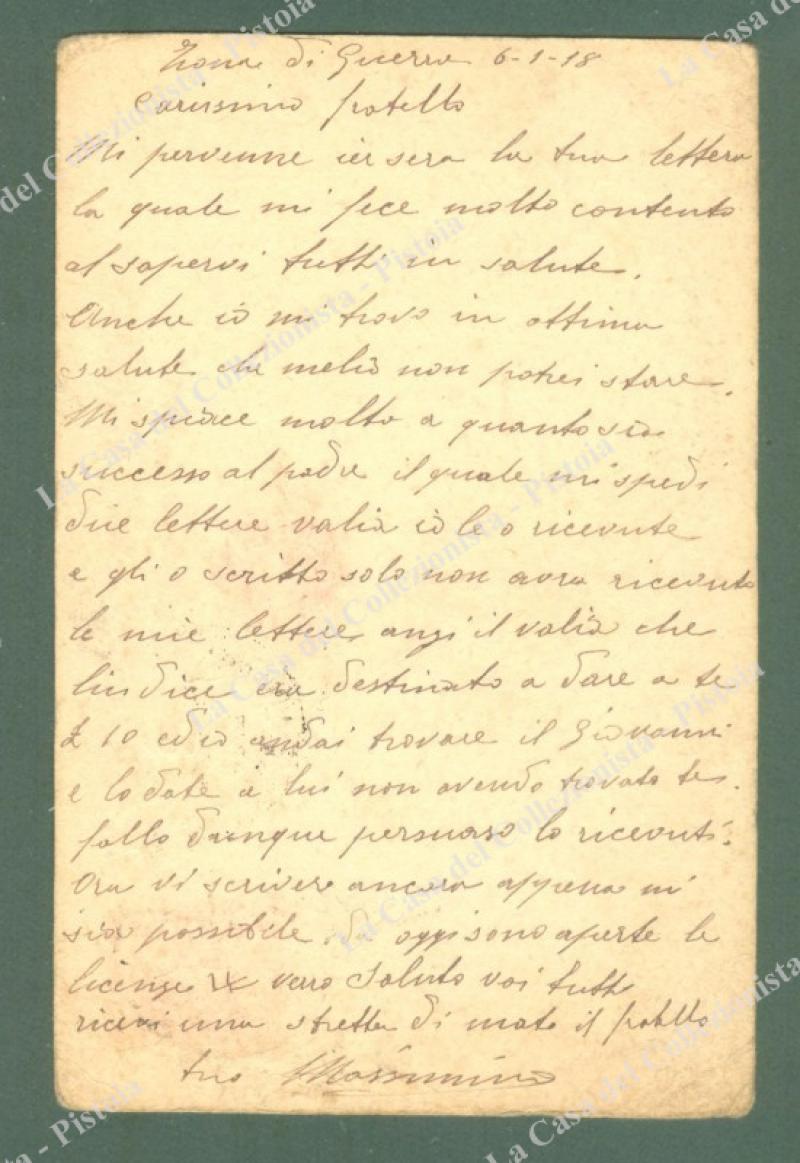 Zona di Guerra 6-1-18
Carissimo fratello
Mi pervenne ier sera la tua lettera
la quale mi fece molto contento
al sapervi tutti in salute.
Anche io mi trovo in ottima
salute che melio non potrei stare.
Mi spiace molto a quanto sia
successo al padre il quale mi spedi
due lettere valia io le o ricevute
e gli o scritto solo non avra ricevuto
le mie lettere, anzi il valia che
era destinato a dare a te
£ 10 ed io andai trovare il Giovanni
e lo date a lui non avendo trovato te.
fallo dunque persuaso lo ricevuti.
Ora vi scrivero ancora appena mi
sia possibile. Da oggi sono aperte le
license vero saluto voi tutti
ricevi una stretta di mato il fratello
tuo Massimino
La Casa del Collezionista - Pistoia